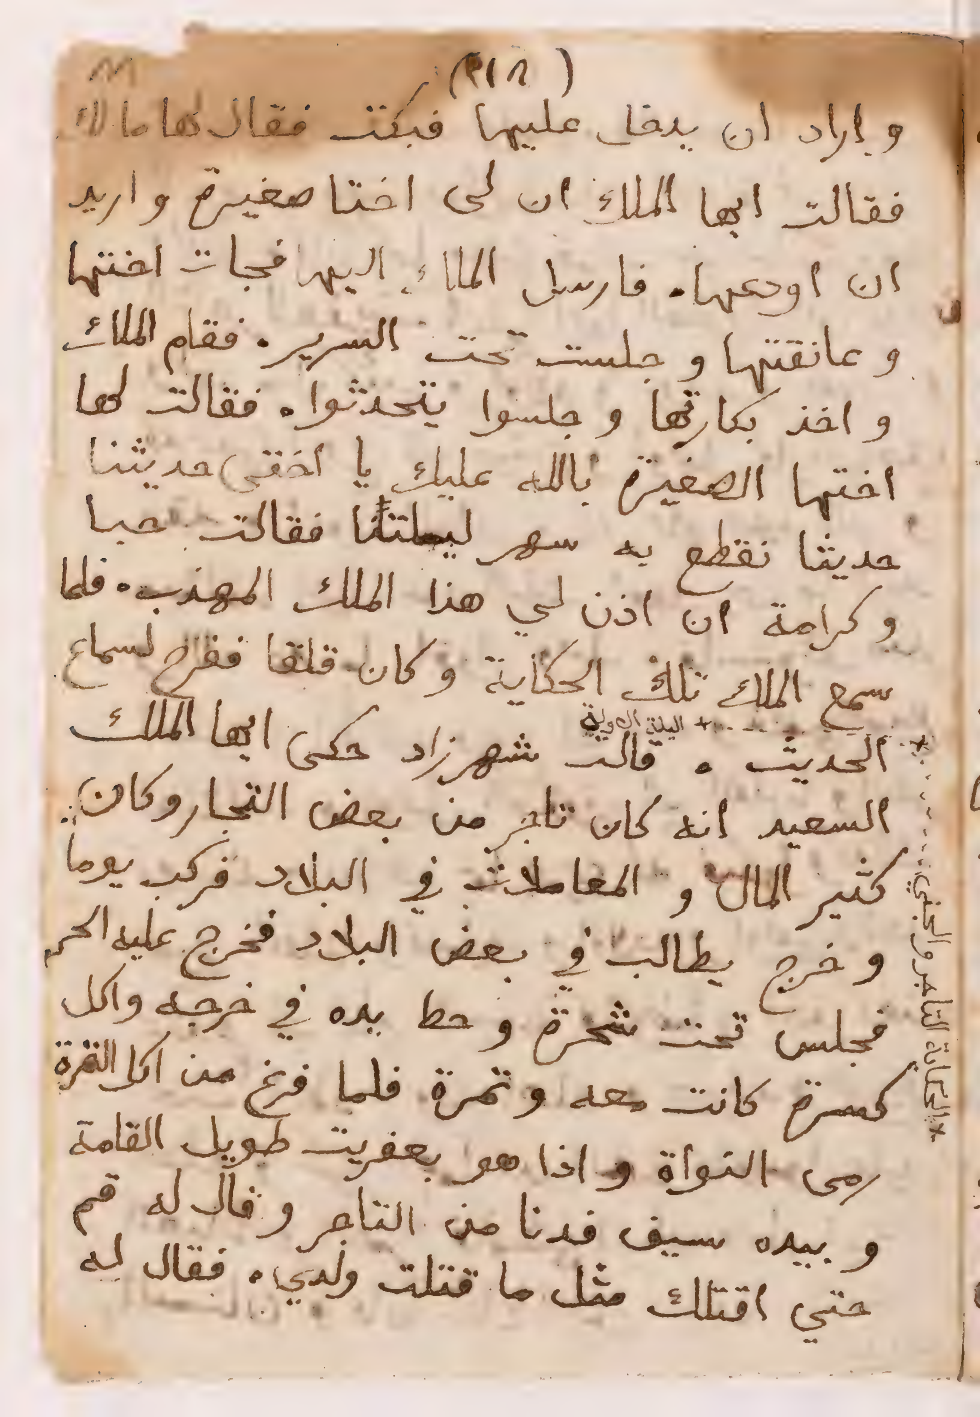 (٣١٨)
و اراد ان يدخل عليها فبكت فقال لها مالك
فقالت ايها الملك ان لى اختا صغيرة و اريد
ان اودعها. فارسل الملك اليها فجات اختها
و عانقتها و جلست تحت السرير. فقام الملك
و اخذ بكارتها و جلسوا يتحدثوا. فقالت لها
اختها الصغيرة بالله عليك يا اختى حديثنا
حديثا نقطع به سهر ليلتنا فقالت حبا
و كرامة ان اذن لي هذا الملك المهذب. فلما
سمع الملك تلك الحكاية و كان قلقا ففرح لسماع
+ اليلة الاولة
الحديث . قالت شهرزاد حكى ايها الملك
السعيد انه كان تاجر من بعض التجار وكان
كثير المال و المعاملات في البلاد فركب يوما
و خرج يطالب في بعض البلاد فخرج عليه الحر
فجلس تحت شجرة و حط يده في خرجه واكل
كسرة كانت معه و تمرة فلما فرغ من اكل التمرة
رمى النواة و اذا هو بعفريت طويل القامة
و بيده سيف فدنا من التاجر و قال له قم
حتي اقتلك مثل ما قتلت ولدي. فقال له
+ الحكاية التاجر والجني